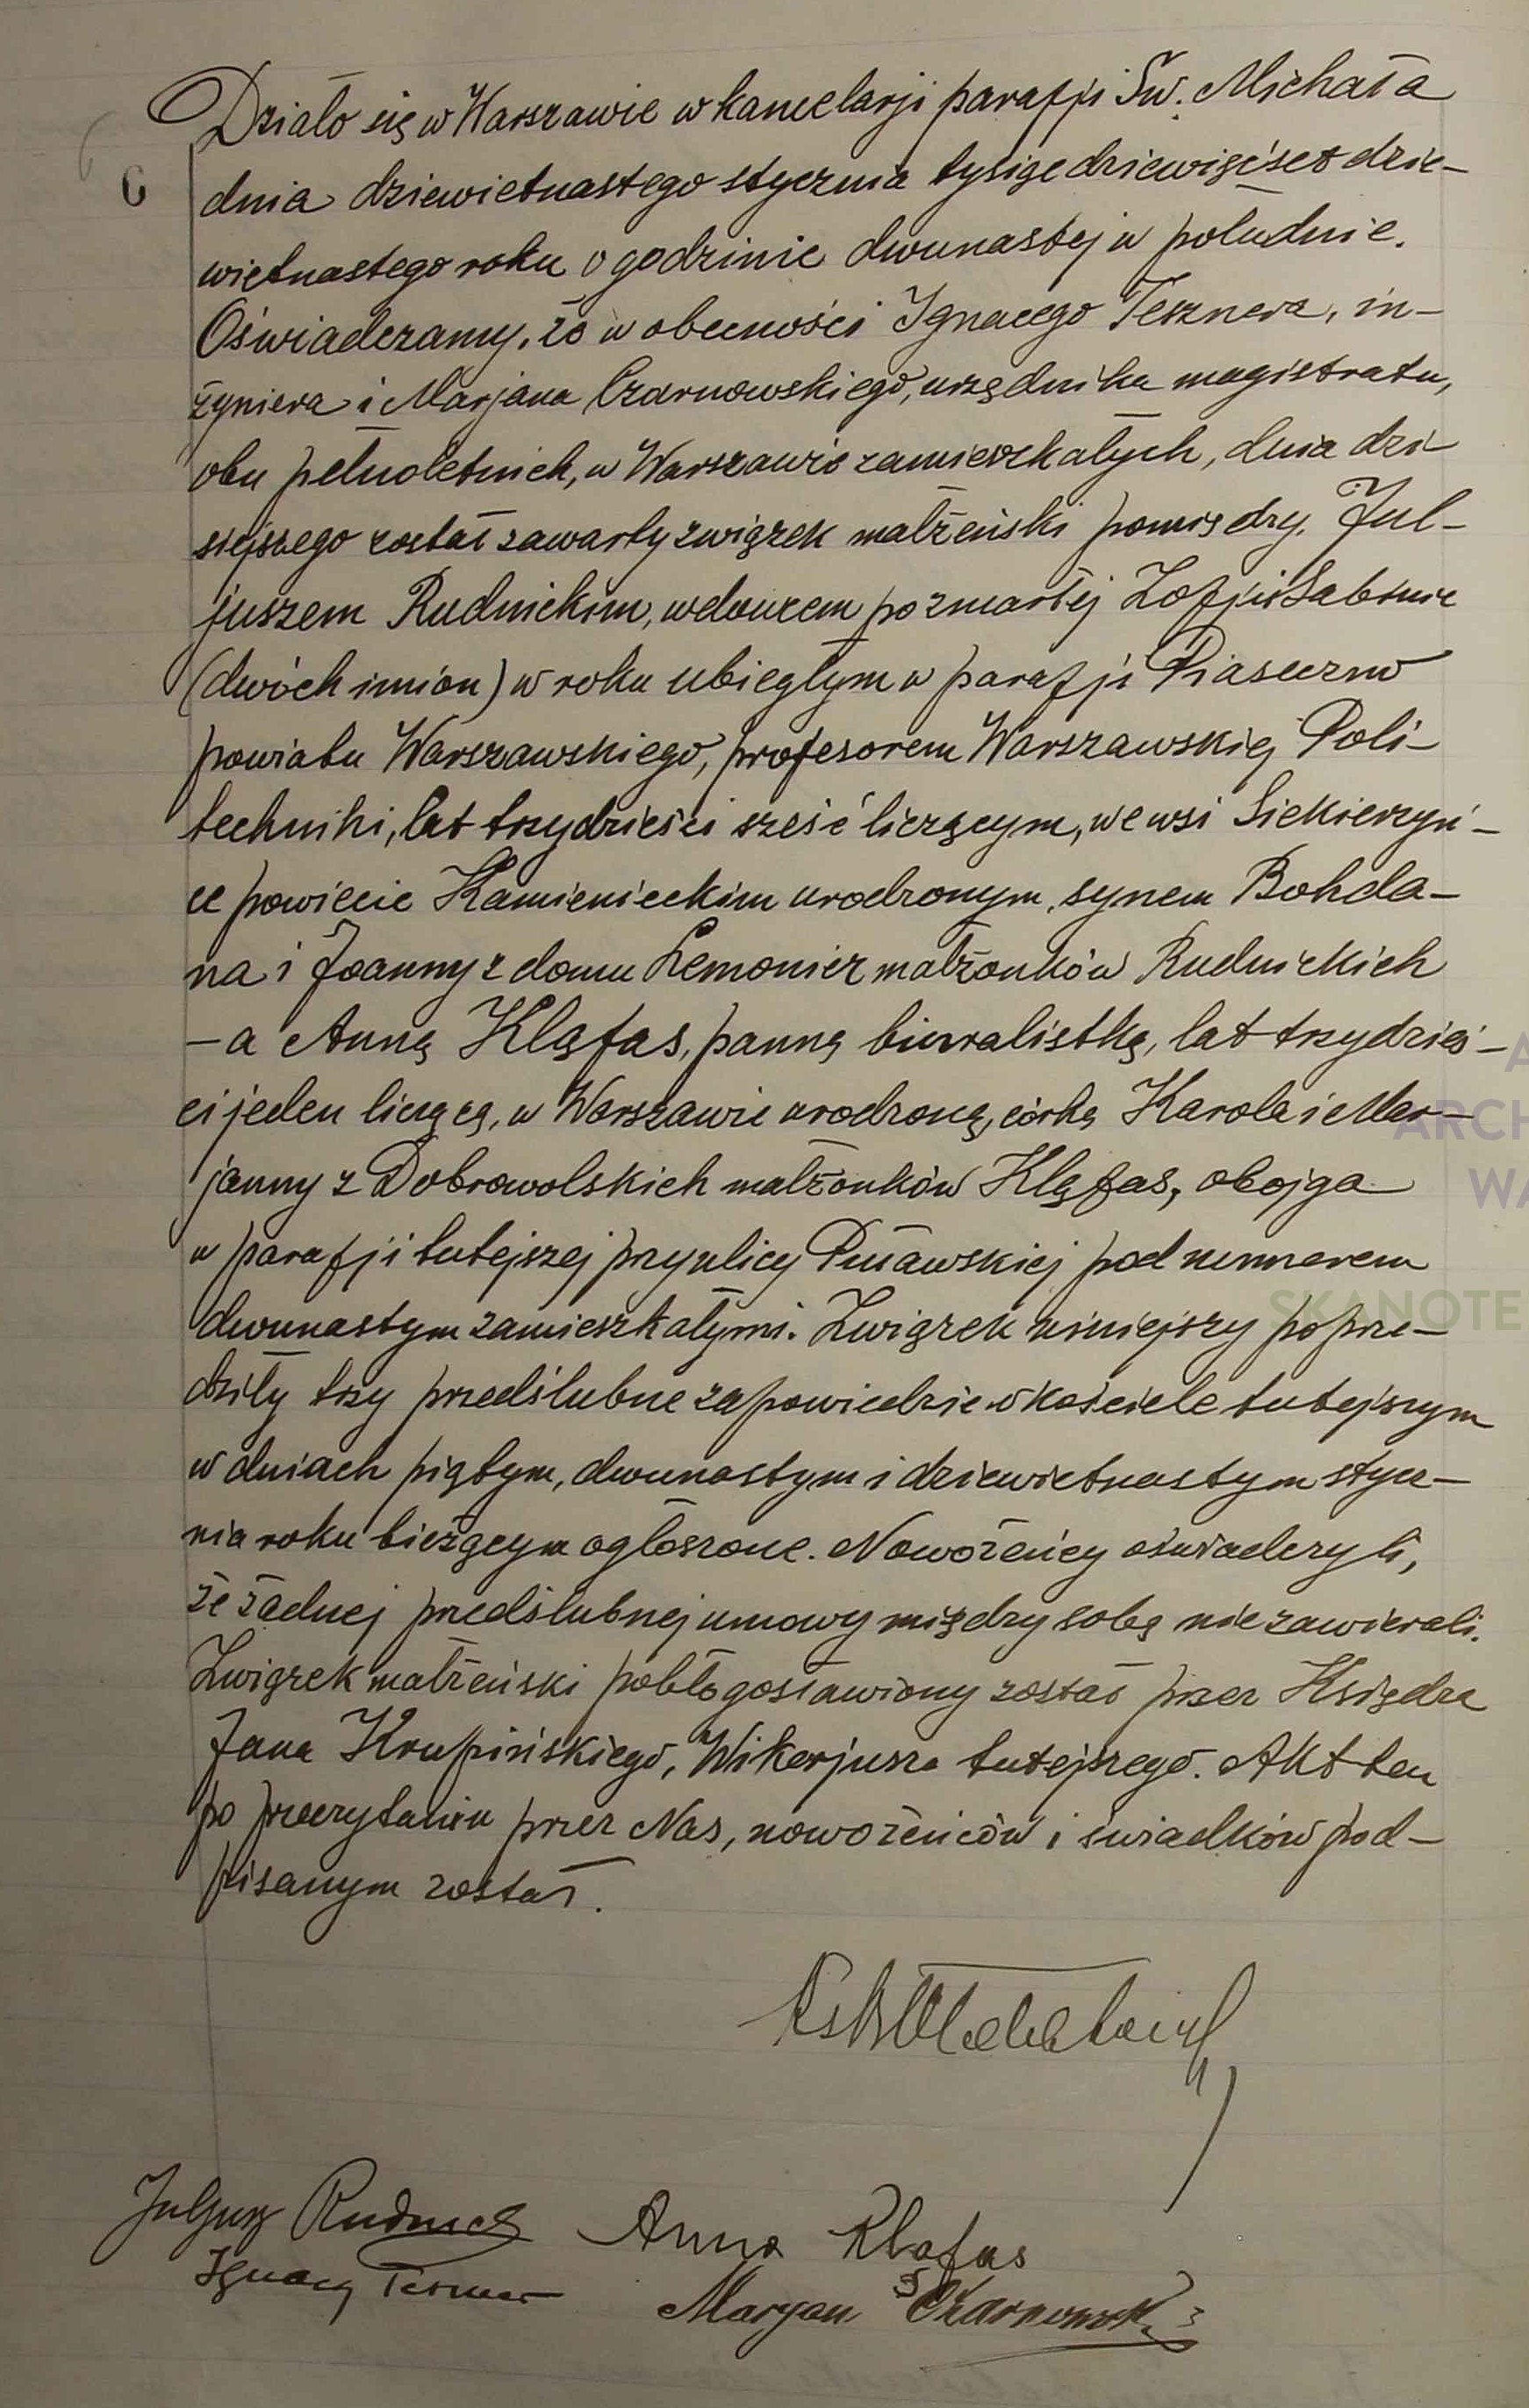 Działo się w Warszawie w kancelarji parafji Św. Michała
6 dnia dziewietnastego stycznia tysiąc dziewięćset dzie-
wietnastego roku o godzinie dwunastej w południe.
Oświadczamy, że w obecności Ignacego Tesznera, in-
żyniera i Marjana Czarnowskiego, urzędnika magistratu,
obu pełnoletnich, w Warszawie zamieszkałych, dnia dzi-
siejszego został zawarty związek małżeński pomiędzy Jul-
juszem Rudnickim, wdowcem po zmarłej Zofji Sabinie
(dwóch imion) w roku ubiegłym w parafji Piaseczno
powiatu Warszawskiego, profesorem Warszawskiej Poli-
techniki, lat trzydzieści sześć liczącym, we wsi Siekierzyń-
ce powiecie Kamienieckim urodzonym, synem Bohda-
na i Joanny z domu Lemonier małżonków Rudnickich
- a Anną Kląfas, panną biuralistką, lat trzydzieś-
ci jeden liczącą, w Warszawie urodzoną, córką Karola i Mar-
janny z Dobrowolskich małżonków Kląfas, obojga
w parafji tutejszej przy ulicy Puławskiej pod numerem
dwunastym zamieszkałymi. Związek niniejszy poprze-
dziły trzy przedślubne zapowiedzie w kościele tutejszym
w dniach piątym, dwunastym i dziewietnastym stycz-
nia roku bieżącym ogłoszone. Nowożeńcy oświadczyli,
że żadnej przedślubnej umowy między sobą nie zawierali.
Związek małżeński pobłogosławiony został przez Księdza
Jana Krupińskiego, Wikarjusza tutejszego. Akt ten
po przeczytaniu przez Nas, nowożeńców i świadków pod-
pisanym został.
Juljusz Rudnicki Anna Klafas
Ignacy Teszner Maryan Czarnowski
ARCH
WA
SKANOTE